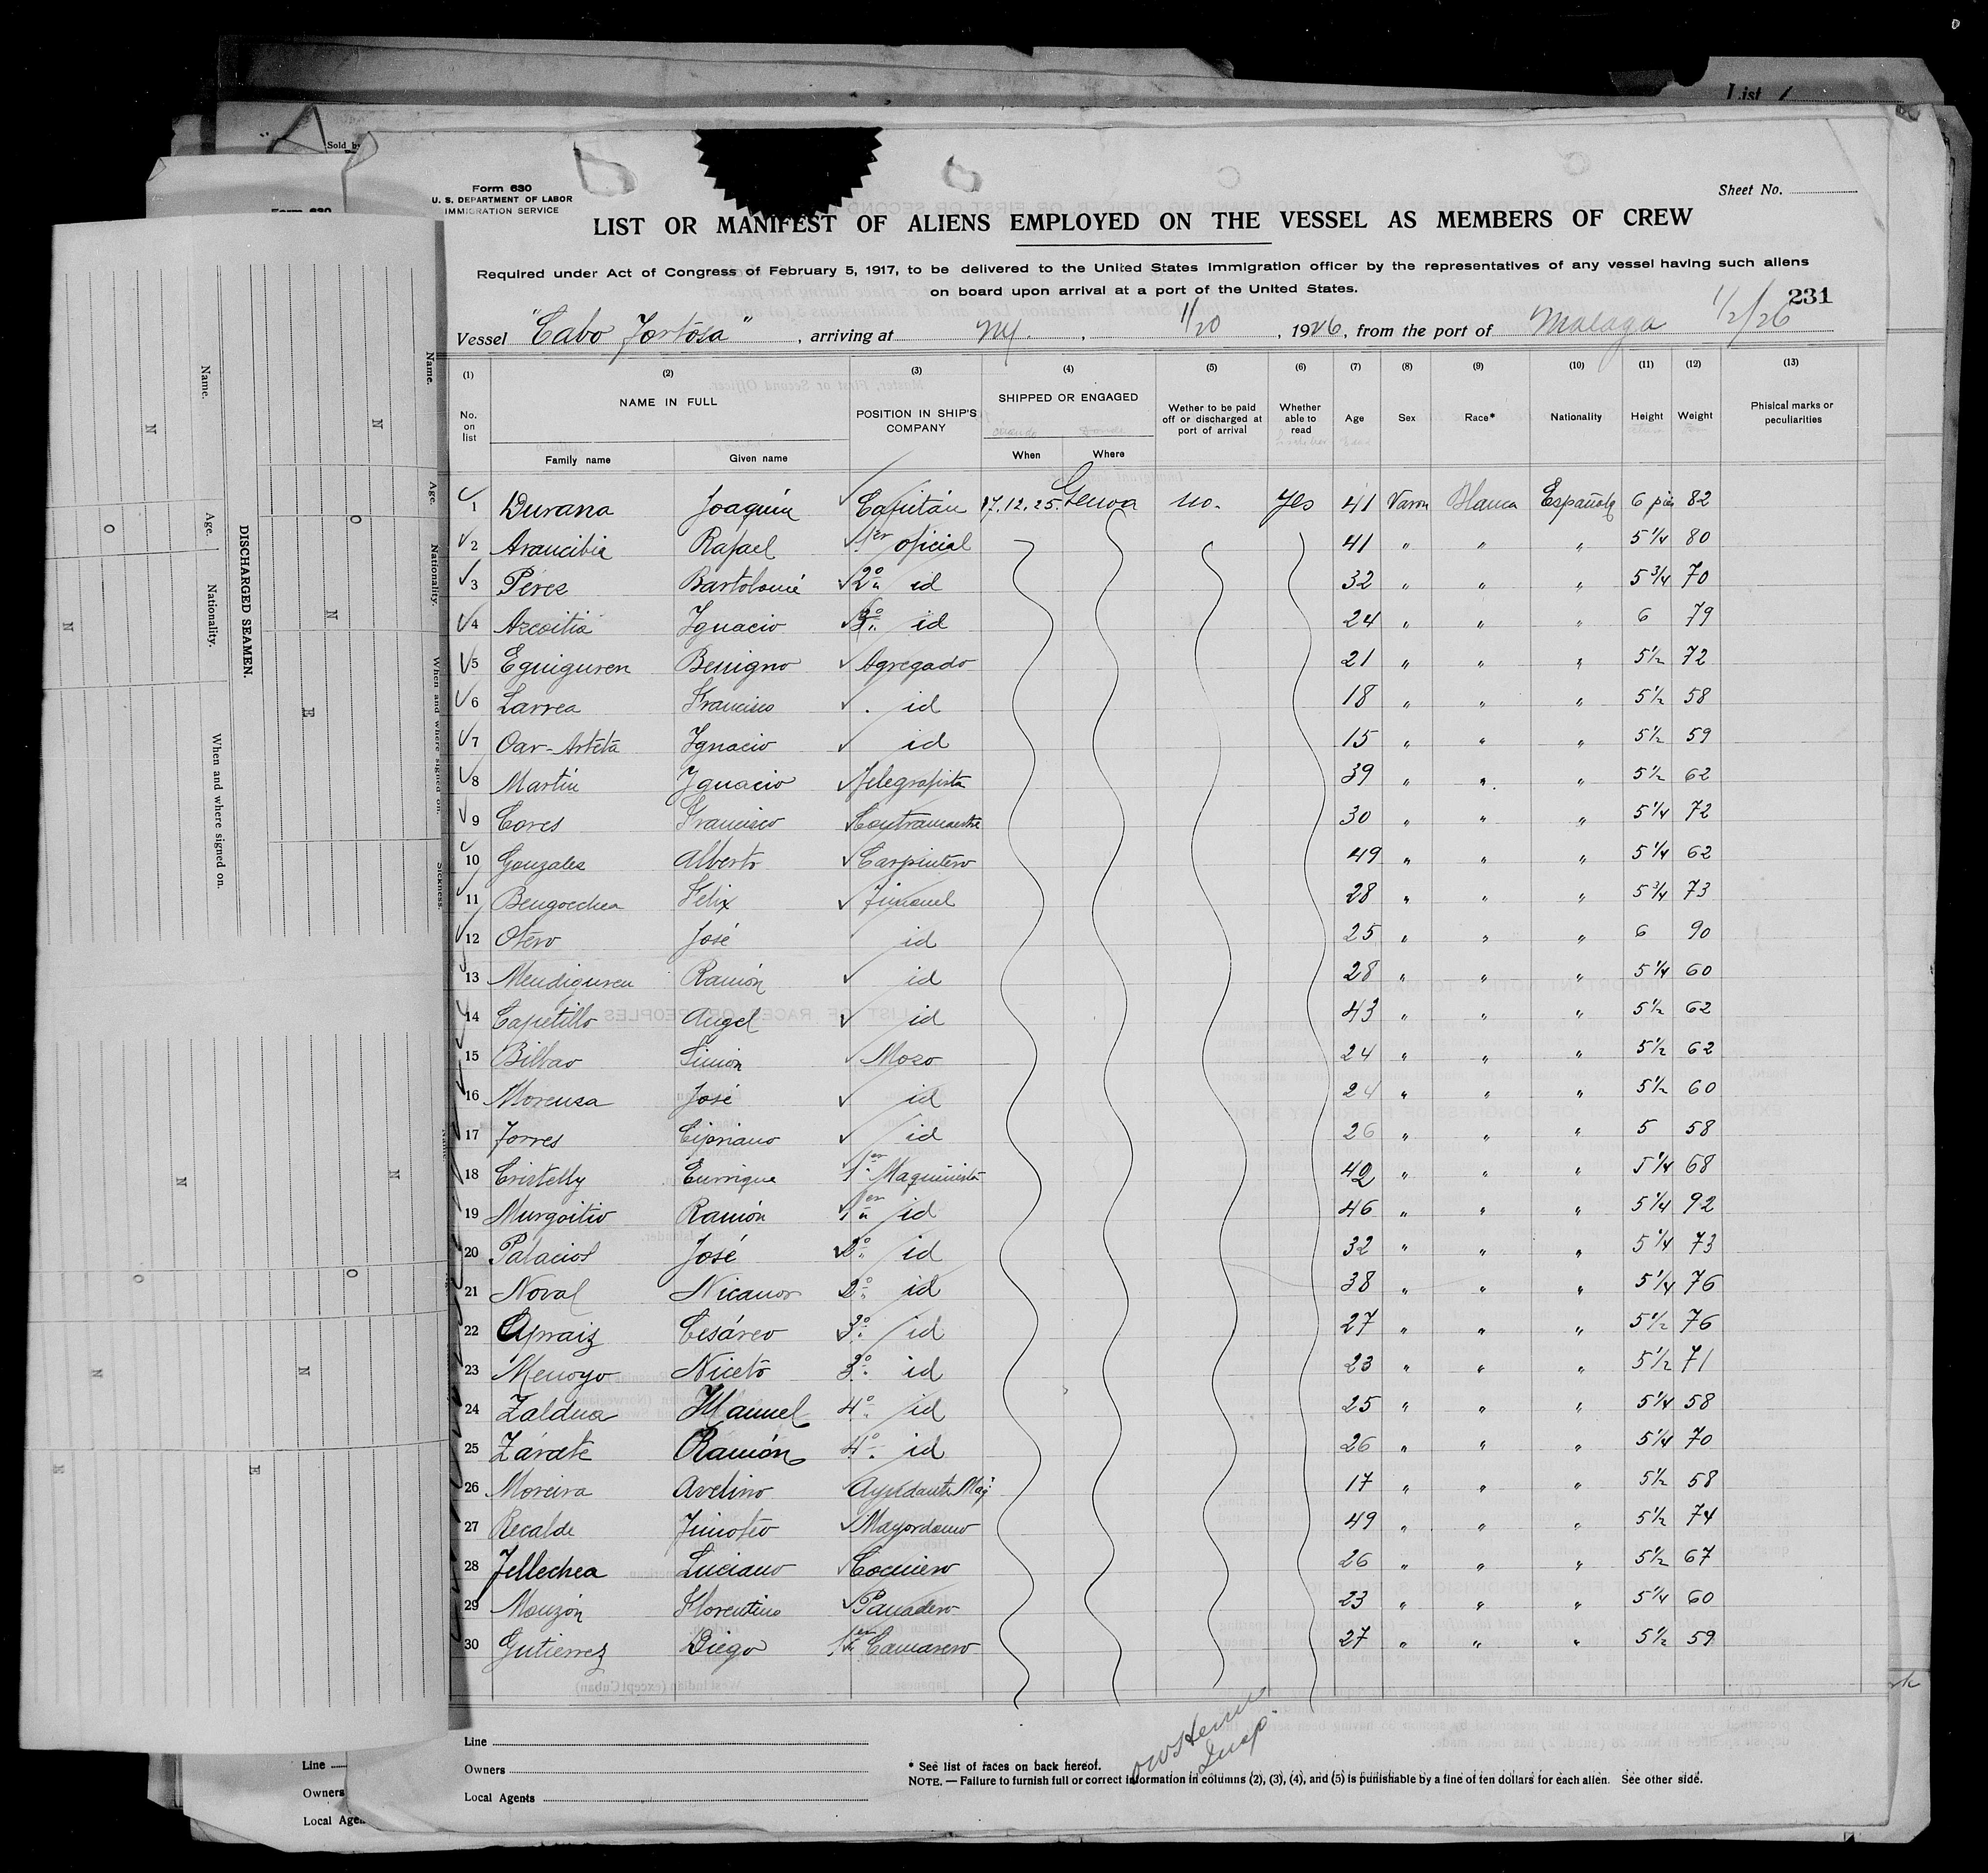 List 1
Sold by
Form 630
U. S. DEPARTMENT OF LABOR
IMMIGRATION SERVICE
Sheet No.
LIST OR MANIFEST OF ALIENS EMPLOYED ON THE VESSEL AS MEMBERS OF CREW
Required under Act of Congress of February 5, 1917, to be delivered to the United States immigration officer by the representatives of any vessel having such aliens
on board upon arrival at a port of the United States.
231
Vessel "Cabo Tortosa", arriving at NY., 1/20, 1926, from the port of Malaga 1/2/26
(1) (2) (3) (4) (5) (6) (7) (8) (9) (10) (11) (12) (13)
No. on list NAME IN FULL POSITION IN SHIP'S COMPANY SHIPPED OR ENGAGED Wether to be paid off or discharged at port of arrival Whether able to read Age Sex Race* Nationality Height Weight Phisical marks or peculiarities
Family name Given name When Where
1 Durana Joaquín Capitán 17.12.25. Genoa no. Yes 41 Varon Blanca Española 6 pies 82
2 Araucibia Rafael 1er oficial 41 " " " 5 1/4 80
3 Pérez Bartolomé 2º id 32 " " " 5 3/4 70
4 Azcoitia Ignacio 3º id 24 " " " 6 79
5 Eguiguren Benigno Agregado 21 " " " 5 1/2 72
6 Larrea Francisco id 18 " " " 5 1/2 58
7 Oar-Arteta Ignacio id 15 " " " 5 1/2 59
8 Martín Ignacio Telegrafista 39 " " " 5 1/2 62
9 Cores Francisco Contramaestre 30 " " " 5 1/4 72
10 Gonzales Alberto Carpintero 49 " " " 5 1/4 62
11 Bengoechea Félix Timonel 28 " " " 5 3/4 73
12 Otero José id 25 " " " 6 90
13 Mendiguren Ramón id 28 " " " 5 1/4 60
14 Capetillo Angel id 43 " " " 5 1/2 62
15 Bilbao Simón Mozo 24 " " " 5 1/2 62
16 Morensa José id 24 " " " 5 1/2 60
17 Torres Cipriano id 26 " " " 5 58
18 Cristelly Enrrique 1er Maquinista 42 " " " 5 1/4 68
19 Murgoitio Ramón 1er id 46 " " " 5 1/4 92
20 Palacios José 2º id 32 " " " 5 1/4 73
21 Noval Nicanor 2º id 38 " " " 5 1/4 76
22 Apraiz Cesáreo 3º id 27 " " " 5 1/2 76
23 Menoyo Niceto 3º id 23 " " " 5 1/2 71
24 Zaldua Manuel 4º id 25 " " " 5 1/4 58
25 Zárate Ramón 4º id 26 " " " 5 1/4 70
26 Moreira Avelino Ayudante Maq 17 " " " 5 1/2 58
27 Recalde Timoteo Mayordomo 49 " " " 5 1/2 74
28 Tellechea Luciano Cocinero 26 " " " 5 1/2 67
29 Monzón Florentino Panadero 23 " " " 5 1/4 60
30 Gutierrez Diego 1er Camarero 27 " " " 5 1/2 59
Insp.
Line
Owners
Local Agents
* See list of races on back hereof.
NOTE. — Failure to furnish full or correct information in columns (2), (3), (4), and (5) is punishable by a fine of ten dollars for each alien. See other side.
DISCHARGED SEAMEN.
Name. Age. Nationality. When and where signed on.
N O N E
Name. Age. Nationality. When and where signed on. Sickness.
N O N E
N O N E
N O N E
Line
Owners
Local Agen